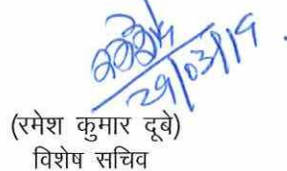 29/03/19
(रमेश कुमार दूबे)
विशेष सचिव